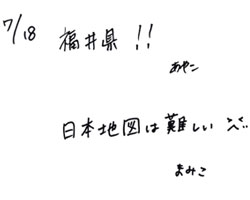 7/18 福井県!!
あやこ
日本地図は難しい
まみこ